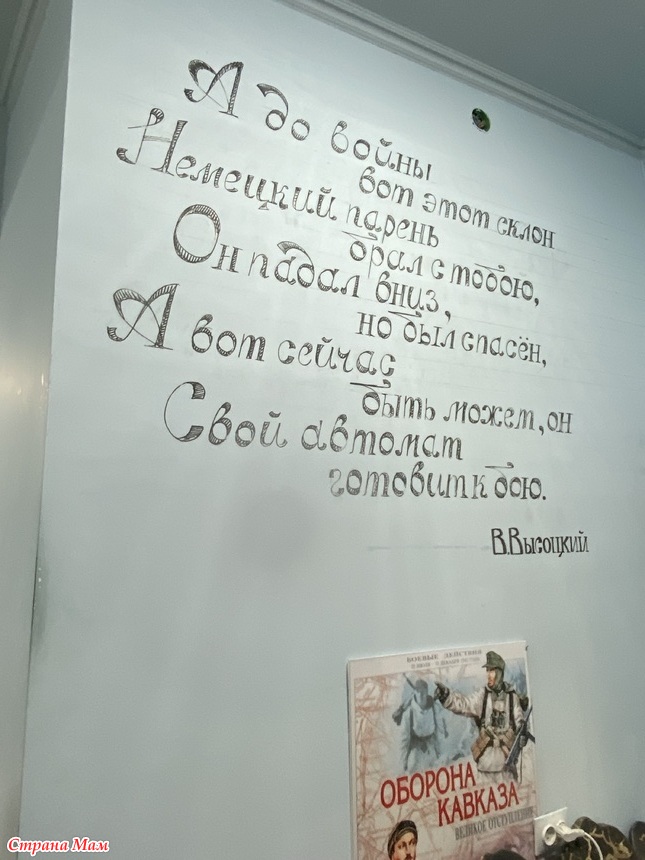 А до войны
вот этот склон
Немецкий парень
брал с тобою,
Он падал вниз,
но был спасён,
А вот сейчас
быть может, он
Свой автомат
готовит к бою.
В.Высоцкий
ОБОРОНА
КАВКАЗА
ВЕЛИКОЕ ОТСТУПЛЕНИЕ
Страна Мам